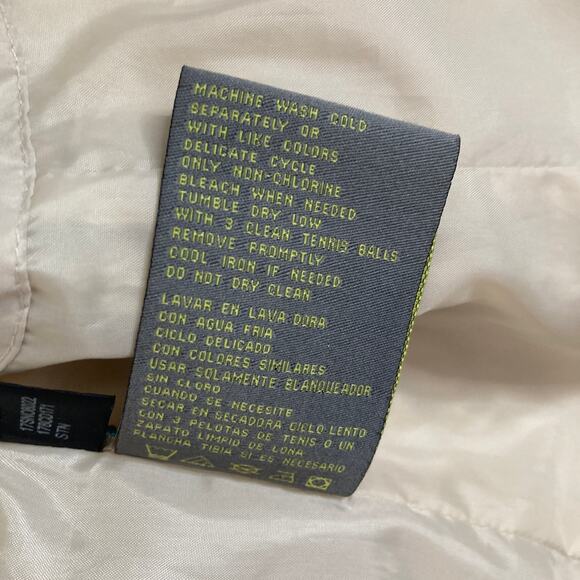 MACHINE WASH COLD
SEPARATELY OR
WITH LIKE COLORS
DELICATE CYCLE
ONLY NON-CHLORINE
BLEACH WHEN NEEDED
TUMBLE DRY LOW
WITH 3 CLEAN TENNIS BALLS
REMOVE PROMPTLY
COOL IRON IF NEEDED
DO NOT DRY CLEAN
LAVAR EN LAVADORA
CON AGUA FRIA
CICLO DELICADO
CON COLORES SIMILARES
USAR SOLAMENTE BLANQUEADOR
SIN CLORO
CUANDO SE NECESITE
SECAR EN SECADORA CICLO LENTO
CON 3 PELOTAS DE TENIS O UN
ZAPATO LIMPIO DE LONA
PLANCHA TIBIA SI ES NECESARIO
STN